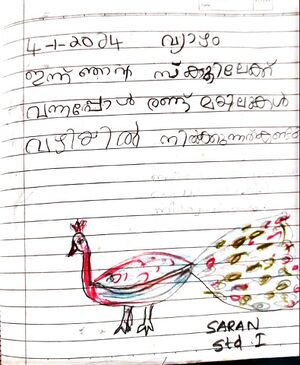 4-1-2024 വ്യാഴം
ഇന്ന് ഞാൻ സ്കൂളിലേക്ക്
വന്നപ്പോൾ രണ്ട് മയിലുകൾ
വഴിയിൽ നിൽക്കുന്നത്കണ്ടു
SARAN
Std I